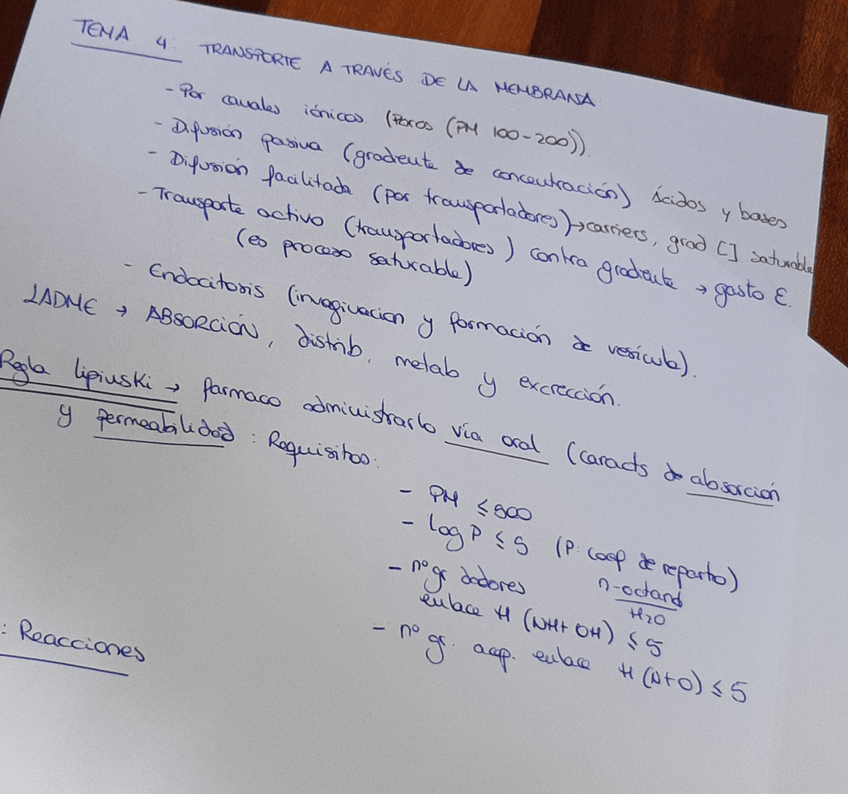 TEMA 4: TRANSPORTE A TRAVÉS DE LA MEMBRANA
- Por canales iónicos (Poros (PM 100-200)).
- Difusión pasiva (gradiente de concentración) Ácidos y bases
- Difusión facilitada (por transportadores)→carriers, grad [] saturable
- Transporte activo (transportadores) contra gradiente → gasto E.
(es proceso saturable)
- Endocitosis (invaginacion y formación de vesícula).
LADME → ABSORCIÓN, distrib, metab y excrección.
Regla lipinski → farmaco administrarlo vía oral (caracts de absorción
y permeabilidad: Requisitos:
- PM ≤500
- log P ≤ 5 (P: coef de reparto)
n-octanol
H2O
- nº gr dadores
enlace H (NH+OH) ≤ 5
- nº gr. acep. enlace H (N+O) ≤ 5
: Reacciones